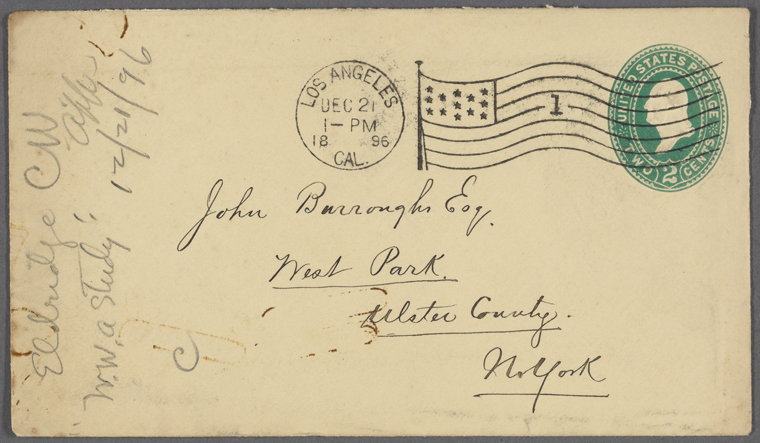 LOS ANGELES
DEC 21
1- PM
18 96
CAL.
1
UNITED STATES POSTAGE
TWO 2 CENTS
John Burroughs Esq.
West Park.
Ulster County.
N. York
Eldridge CW
W.W. a Study":
12/21/96
C